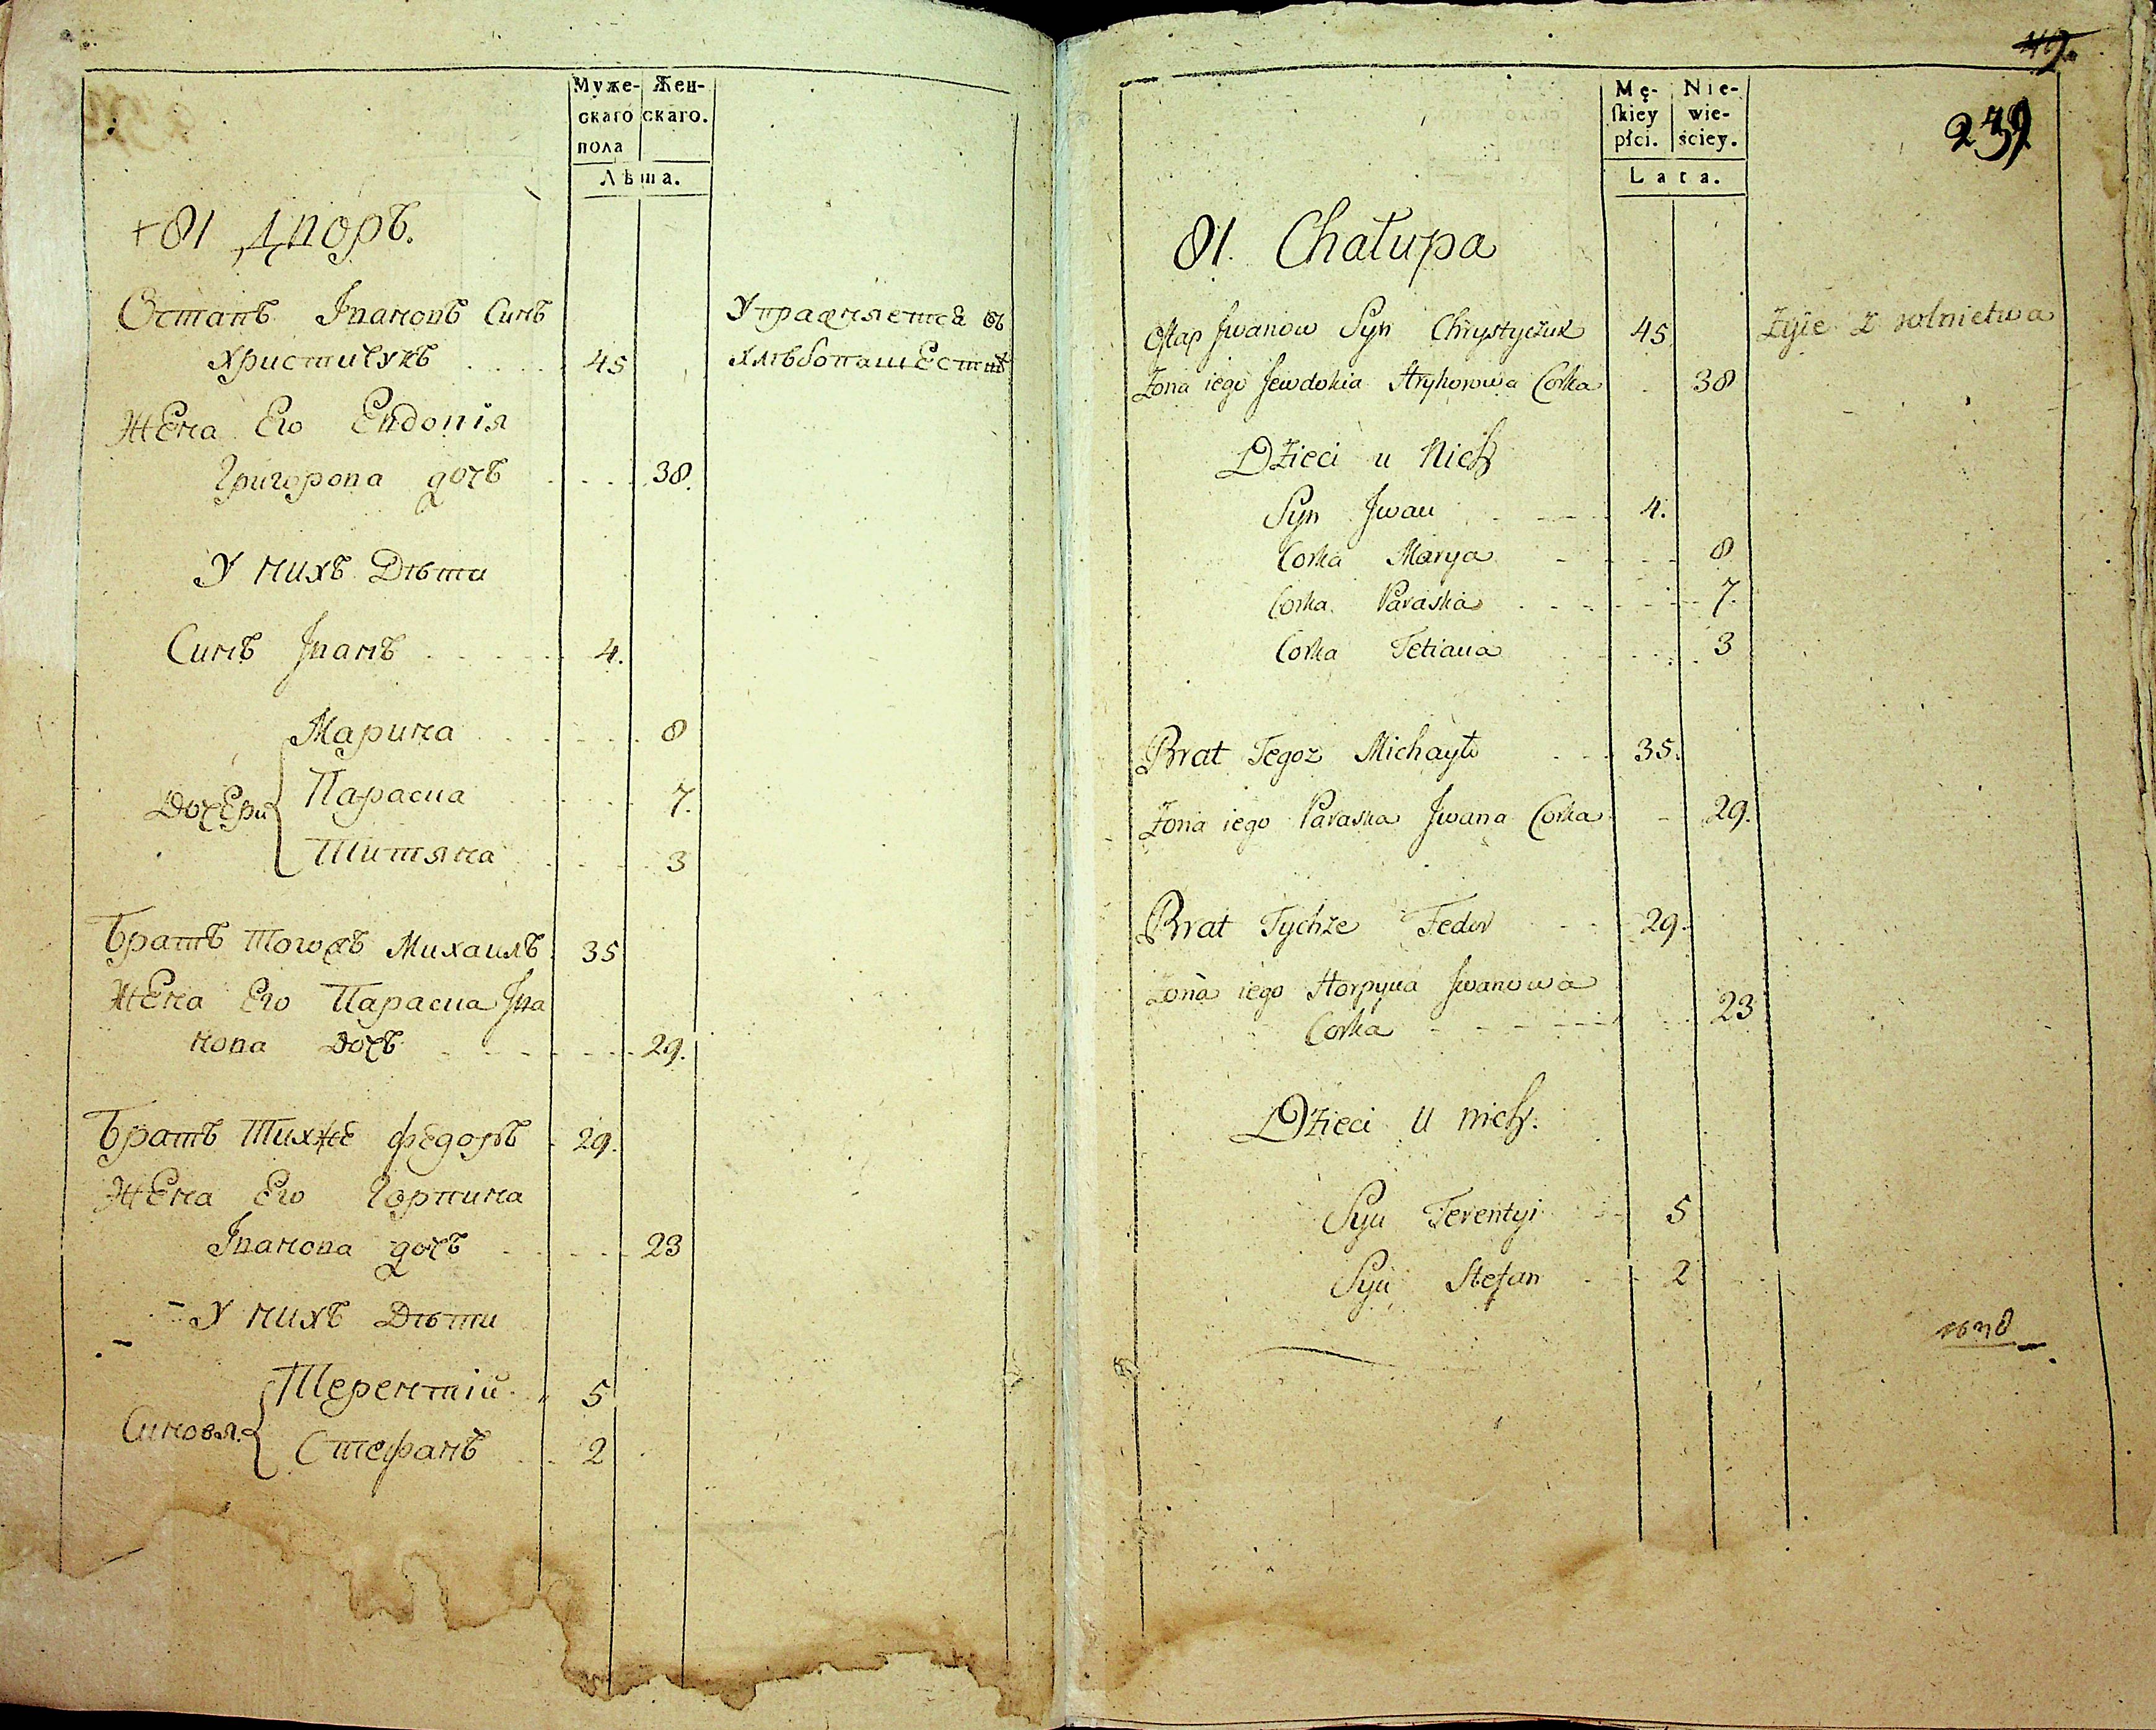 Муже-
скаго
пола
Жен-
скаго.
Лѣта.
+81 Дворъ.
Остапъ Іванонъ Синъ
Христичукъ 45
Упражняется въ
хлѣбопашестве
Жена Его Евдокія
Григорова дочъ 38.
У нихъ Дѣти
Синъ Іванъ 4.
Марина 8
Дочери Параска 7.
Титяна 3
Братъ Тогожъ Михаилъ 35
Жена Его Параска Іва
нова дочъ 29.
Братъ Тихже Федоръ 29.
Жена Его Горпина
Іванова дочъ 23
У нихъ Дѣти
Терентій 5
Синовя
Стефанъ 2
49.
239
Mę-
skiey
płci.
Nie-
wie-
ściey.
Lata.
81. Chałupa
Ostap Jwanow Syn Chrystyczuk 45 żyie z rolnictwa
Żona iego Jewdokia Hryhorowa Corka 38
Dzieci u Nich
Syn Jwan 4.
Corka Marya 8
Corka Paraska 7.
Corka Tetiana 3
Brat Tegoz Michayło 35.
Żona iego Paraska Jwana Corka 29.
Brat Tychże Fedor 29.
Żona iego Horpyna Jwanowa
Corka 23
Dzieci U nich.
Syn Terentyi 5
Syn Stefan 2